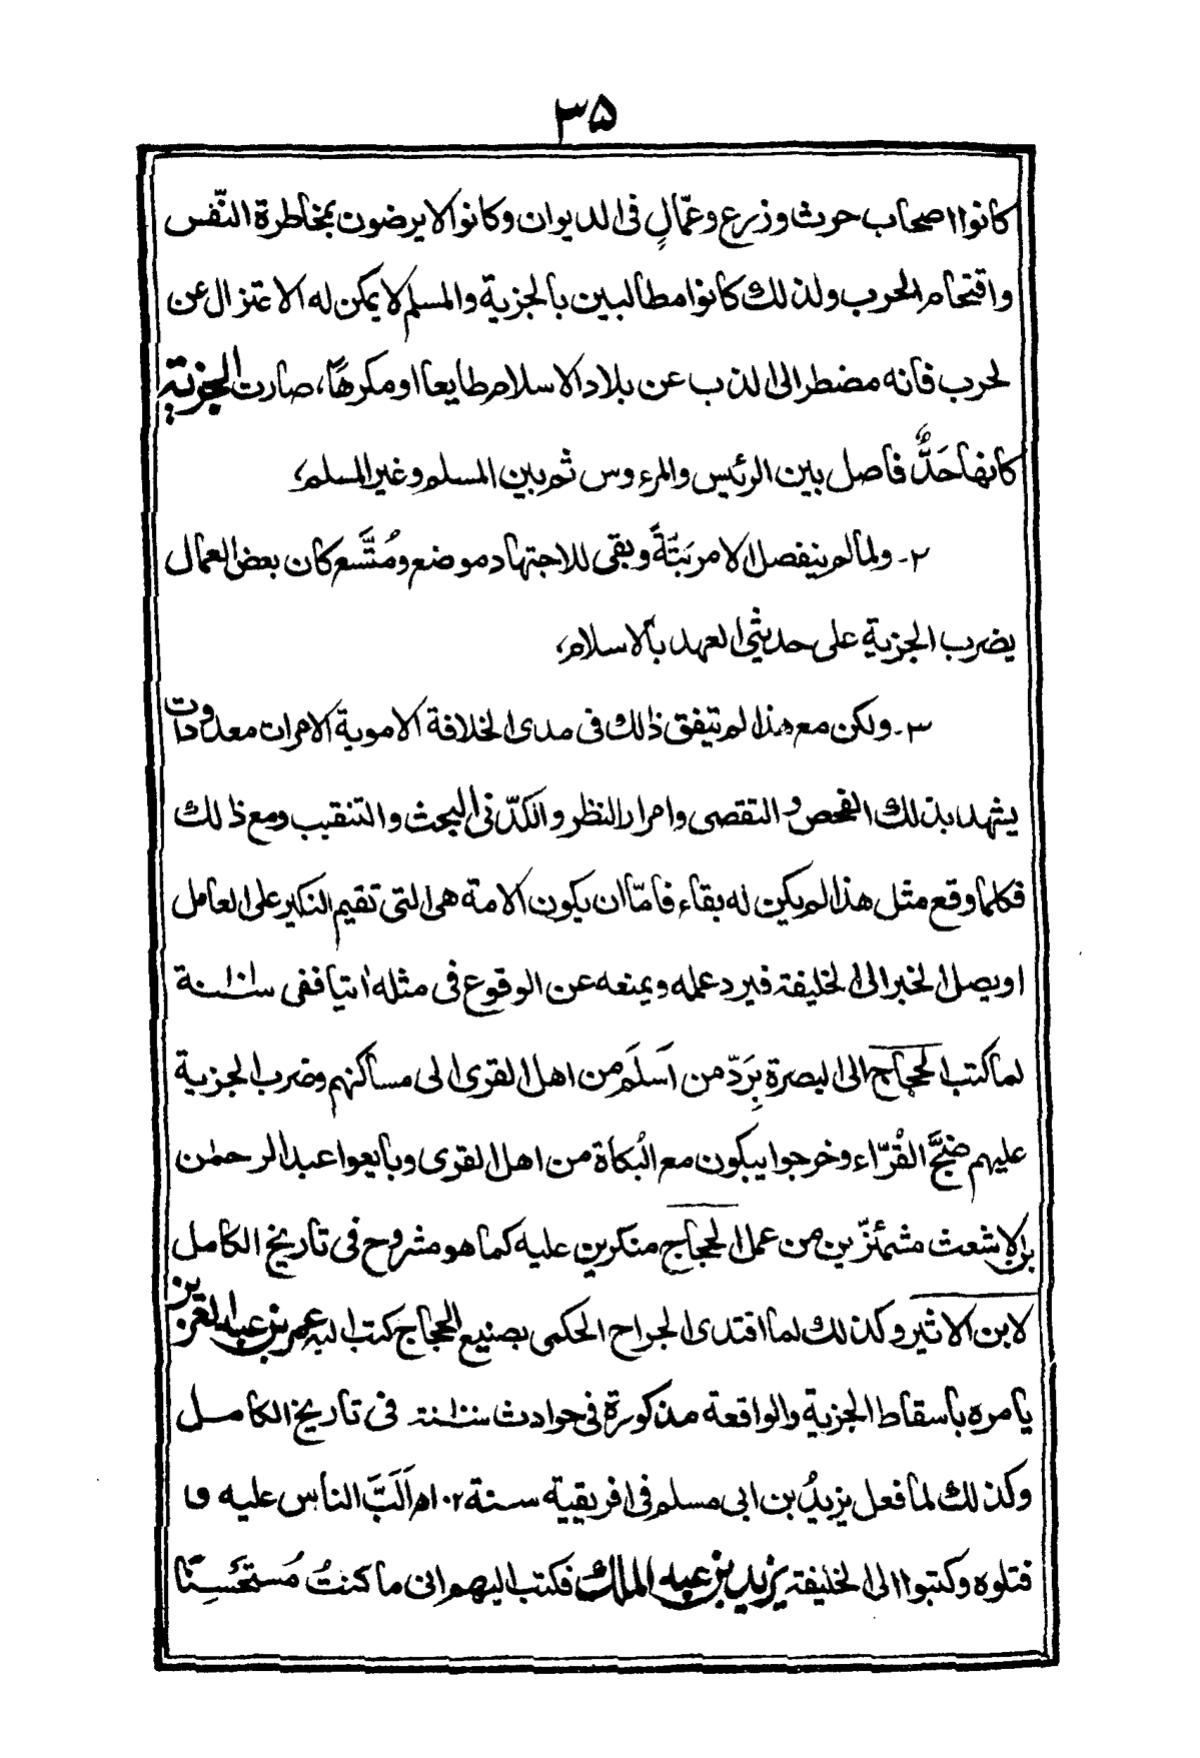 ۳۵
كانوا اصحاب حرث وزرع وعمّالٍ فى الديوان وكانوا لا يرضون بمخاطرة النّفس
واقتحام الحرب ولذلك كانوا مطالبين بالجزية والمسلم لا يمكن له الاعتزال عن
لحرب فانه مضطر الى الذب عن بلاد الاسلام طايعا او مكرهًا، صارت الجزية
كانها حَدٌّ فاصل بين الرئيس والمرءوس ثم بين المسلم وغير المسلم،
۲- ولما لم ينفصل الامر بَتَّةً وبقى للاجتهاد موضع ومُتَّسع كان بعض العمال
يضرب الجزية على حديثى العهد بالاسلام،
۳- ولكن مع هذا لم يتفق ذلك فى مدى الخلافة الاموية الا مرات معدودات
يشهد بذلك الفحص والتقصى وامرار النظر والكدّ فى البحث والتنقيب ومع ذلك
فكلما وقع مثل هذا لم يكن له بقاء فامّا ان يكون الامة هى التى تقيم النكير على العامل
او يصل الخبر الى الخليفة فيرد عمله ويمنعه عن الوقوع فى مثله اتيا ففى سنة
لما كتب الحجاج الى البصرة بِرَدّ من اَسلَم من اهل القرى الى مساكنهم وضرب الجزية
عليهم ضجَّ القُرّاء وخرجوا يبكون مع البُكاة من اهل القرى وبايعوا عبد الرحمٰن
بن الاشعث مشمئزّين من عمل الحجاج منكرين عليه كما هو مشروح فى تاريخ الكامل
لابن الاثير وكذلك لما اقتدى الجراح الحكمى بصنيع الحجاج كتب اليه عمر بن عبد العزيز
يامره باسقاط الجزية والواقعة مذكورة فى حوادث سنة فى تاريخ الكامل
وكذلك لما فعل يزيدُ بن ابى مسلم فى افريقية سنة ١٠٢ه اَلَبَّ الناس عليه و
قتلوه وكتبوا الى الخليفة يزيد بن عبد الملك فكتب اليهم انى ما كنتُ مُستحَسِنًا